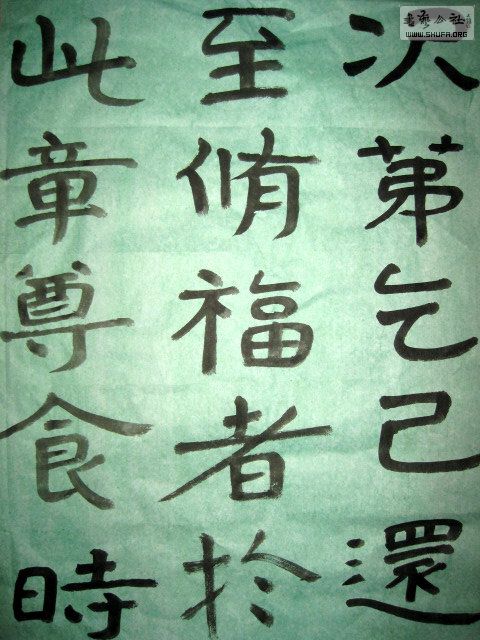 次苐乞己還
至脩福者扵
此章尊食時
書藝公社
WWW.SHUFA.ORG